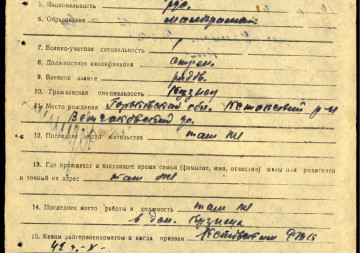 5. Национальность рус.
6. Образование малограмотный
7. Военно-учетная специальность 1
8. Должностная квалификация стрел.
9. Военное звание рядов.
10. Гражданская специальность Кузнец
11. Место рождения Горьковская обл. р-н
12. Последнее место жительства там же
13. Где проживает в настоящее время семья (фамилия, имя, отчество) жены или родителей
и точный их адрес там же
14. Последнее место работы и должность там же
Кузнец
15. Каким райгорвоенкоматом и когда призван РВК